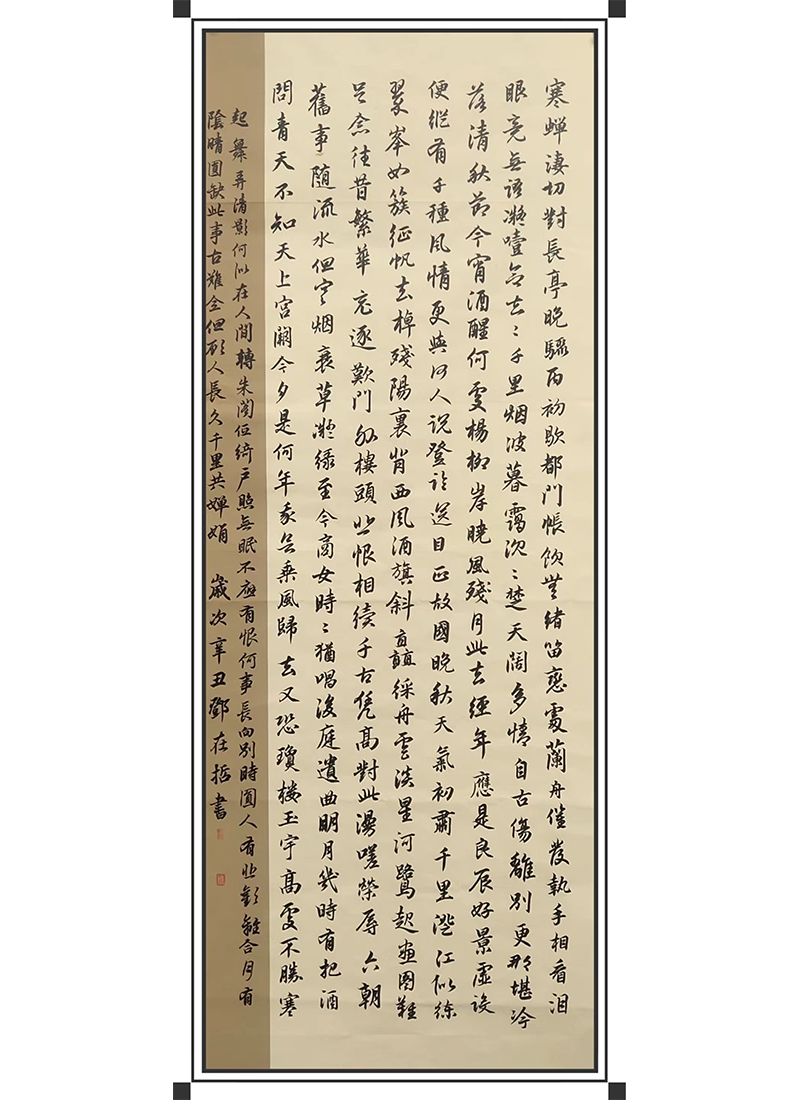 寒蝉淒切對長亭晚驟雨初歇都門帳飲無緒留戀處蘭舟催發執手相看泪
眼竟無語凝噎念去々千里烟波暮靄沉々楚天闊多情自古傷離別更那堪冷
落清秋節今宵酒醒何處楊柳岸曉風殘月此去經年應是良辰好景虛設
便縱有千種風情更與何人說登臨送目正故國晚秋天氣初肅千里澄江似練
翠峯如簇征帆去棹殘陽裏背西風酒旗斜矗綵舟雲淡星河鷺起畫圖難
足念往昔繁華競逐歎門外樓頭悲恨相續千古凭高對此漫嗟榮辱六朝
舊事隨流水但寒烟衰草凝绿至今商女時々猶唱後庭遺曲明月幾時有把酒
問青天不知天上宮闕今夕是何年我欲乘風歸去又恐瓊樓玉宇高處不勝寒
起舞弄清影何似在人間轉朱閣低綺戶照無眠不應有恨何事長向別時圓人有悲歡離合月有
陰晴圓缺此事古難全但願人長久千里共嬋娟 歲次辛丑鄧在哲書